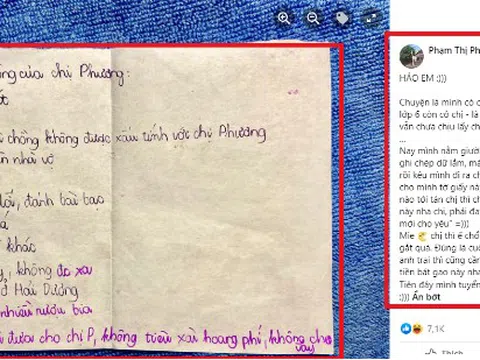 ồng của chị Phương:
ốt
chồng không được xấu tính với chị Phương
nhải vợ
dối, đánh bài bạc
á
khác
y, không đa xa
ở Hải Dương
nhiều rượu bia
đưa cho chị P, không tiêu xài hoang phí, không cho
vay
Phạm Thị Ph
HẢO EM :)))
Chuyện là mình có c
lớp 6 còn cô chị - là
vẫn chưa chịu lấy ch
...
Nay mình nằm giườ
ghi chép dữ lắm, mà
rồi kêu mình đi ra ch
cho mình tờ giấy nà
nào tới tán chị thì ch
này nha chị, phải đa
mới cho yêu" =)))
Mie chị thì ế chổ
gắt quá. Đúng là cu
anh trai thì cũng cần
tiền bát gạo này nha
Tiên đây mình tuyển
:)))) Ẩn bớt
7,1K
Thích